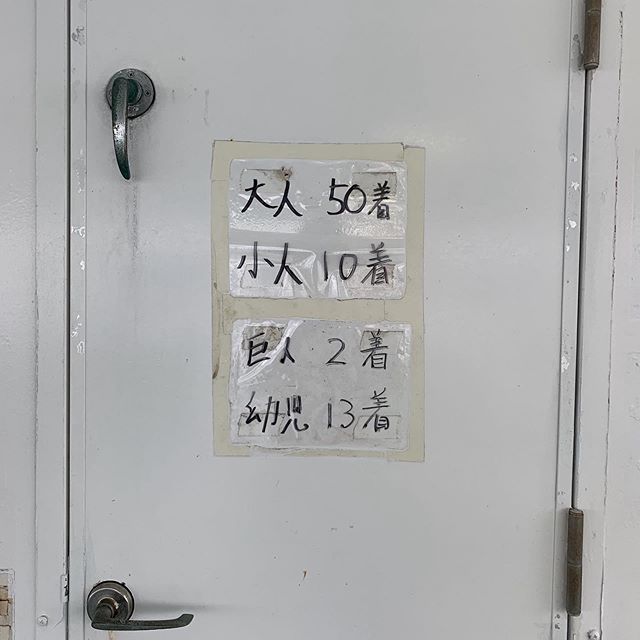 大人 50着
小人 10着
巨人 2着
幼児 13着